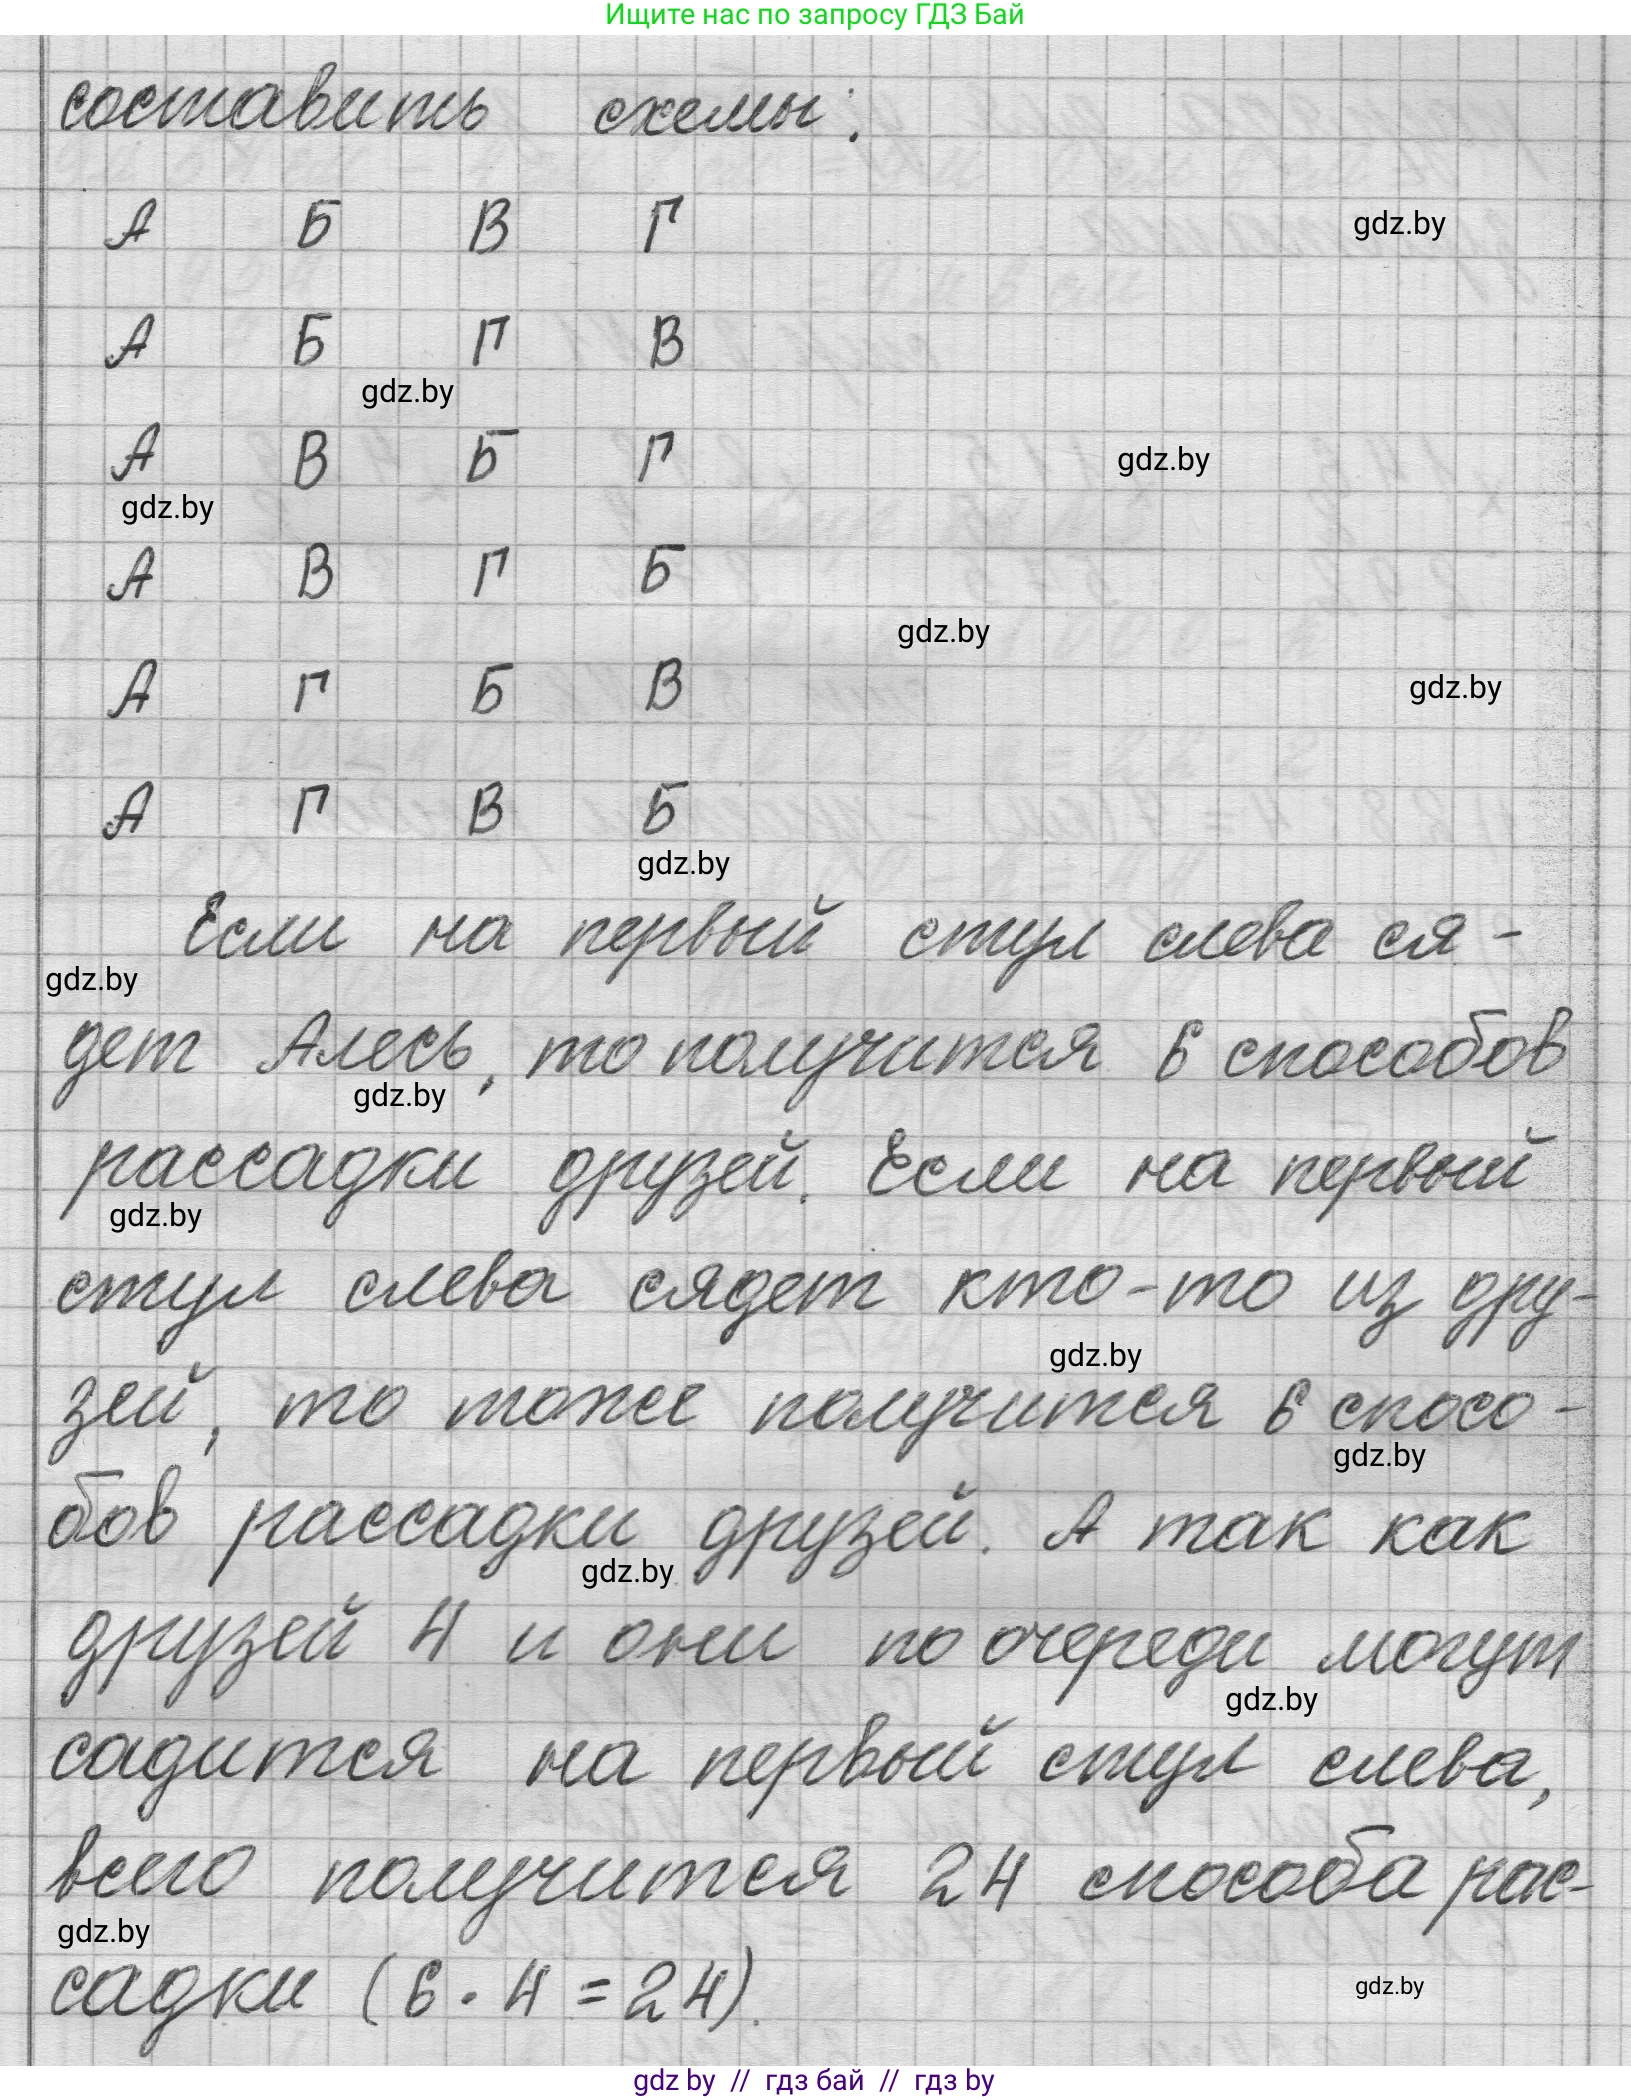 Ищите нас по запросу ГДЗ Бай
составить схемы:
А Б В Г
gdz.by
А Б Г В
gdz.by
А В Б Г
gdz.by
gdz.by
А В Г Б
gdz.by
А Г Б В
gdz.by
А Г В Б
gdz.by
Если на первый стул слева ся-
gdz.by
дет Алесь, то получится 6 способов
gdz.by
рассадки друзей. Если на первый
gdz.by
стул слева сядет кто-то из дру-
gdz.by
зей, то тоже получится 6 спосо-
gdz.by
бов рассадки друзей. А так как
gdz.by
друзей 4 и они по очереди могут
gdz.by
садится на первый стул слева,
всего получится 24 способа рас-
gdz.by
садки (6 · 4 = 24).
gdz.by
gdz by // гдз бай // гдз by